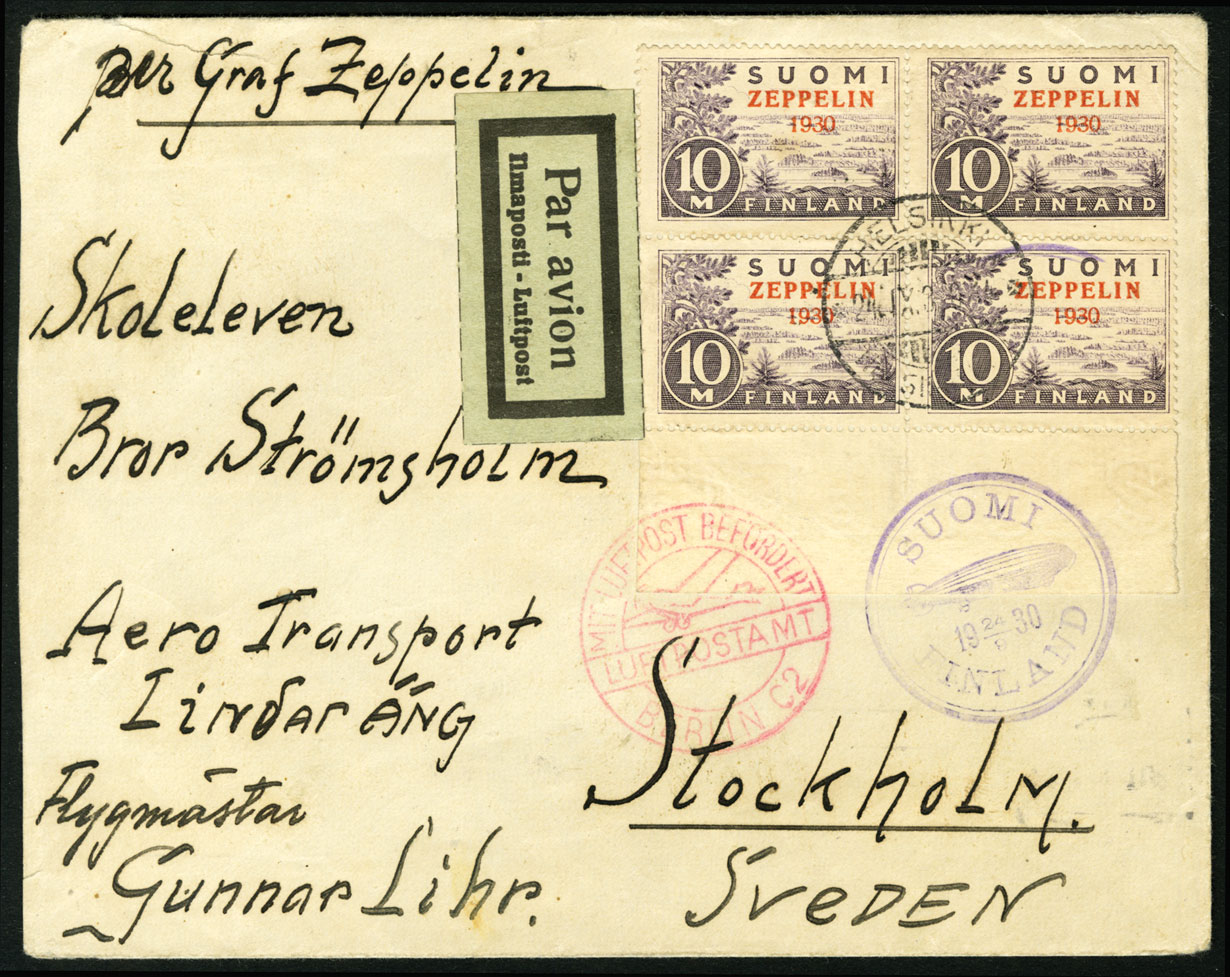 per Graf Zeppelin
Par avion
Ilmaposti - Luftpost
SUOMI
ZEPPELIN
1930
10
M FINLAND
SUOMI
ZEPPELIN
1930
10
M FINLAND
SUOMI
ZEPPELIN
1930
10
M FINLAND
SUOMI
ZEPPELIN
1930
10
M FINLAND
HELSINKI
Skoleleven
Bror Strömsholm
MIT LUFTPOST BEFÖRDERT
LUFTPOSTAMT
BERLIN C2
SUOMI
19 24 30
FINLAND
Aero Transport
Lindar ÄNG
Flygmästar
Gunnar Lihr.
Stockholm.
SveDEN